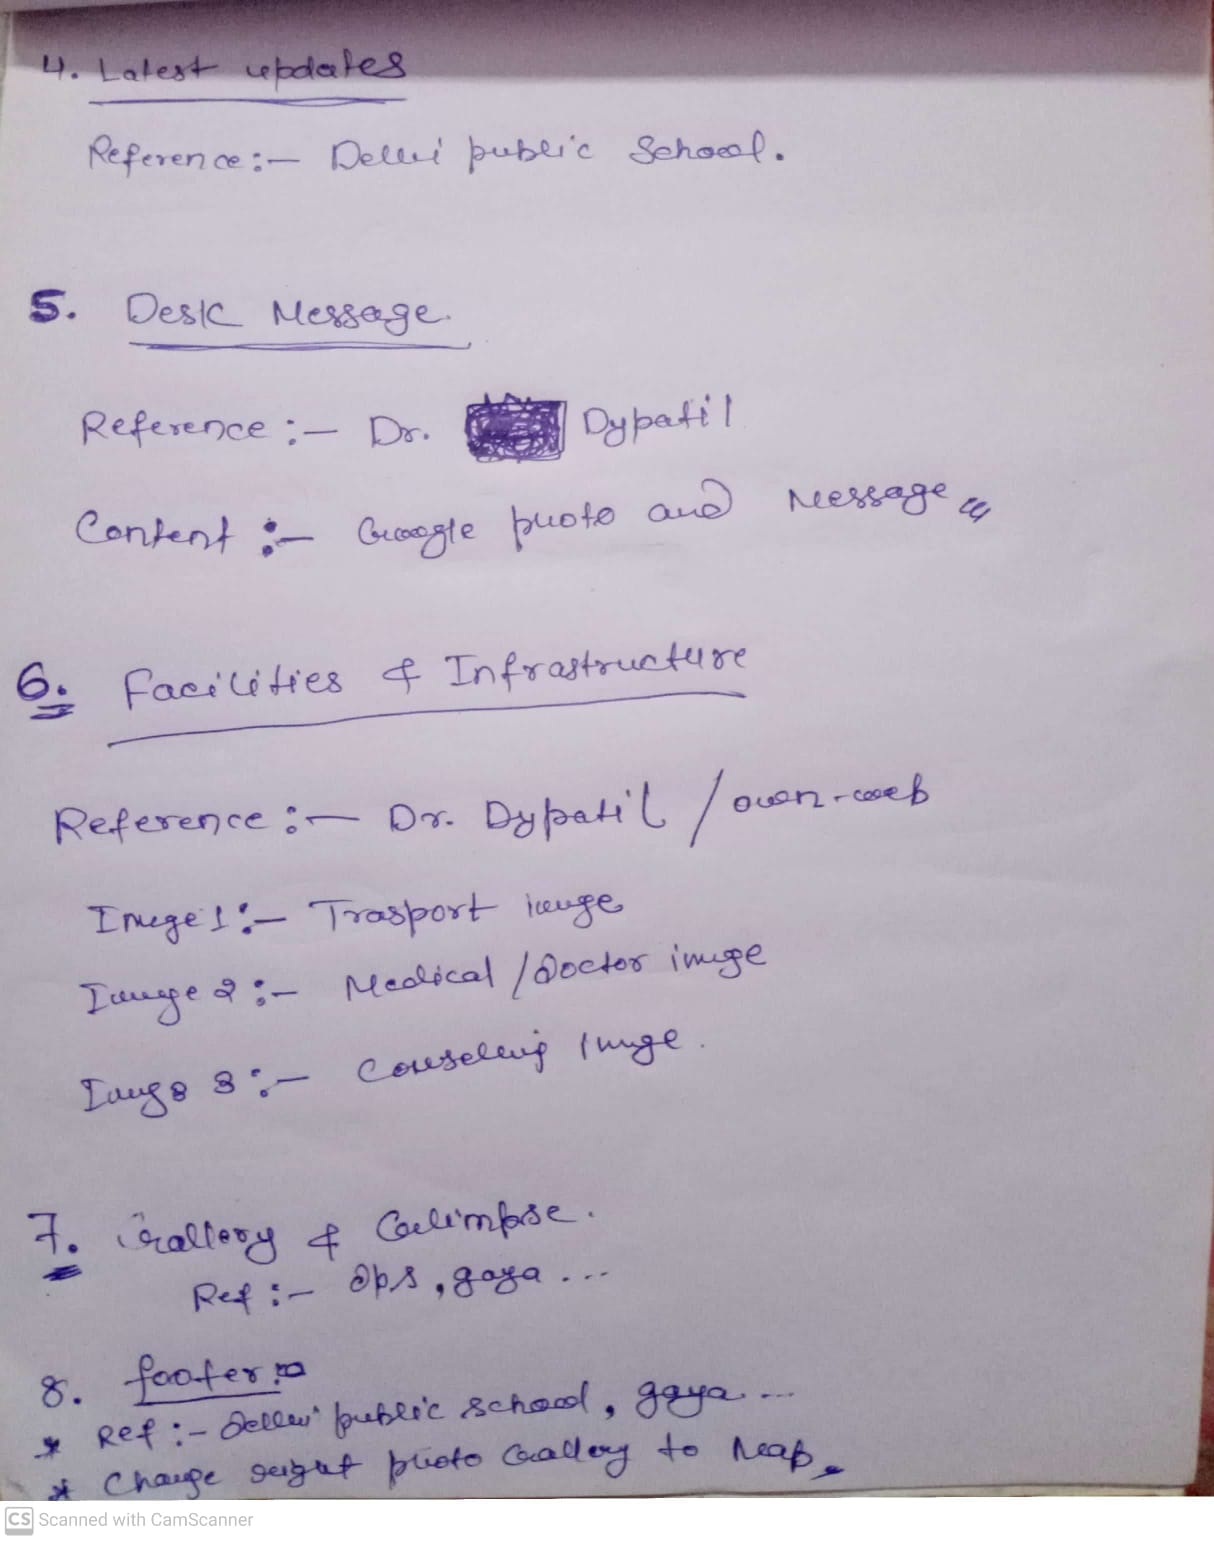 4. Latest updates
Reference:- Delhi public School.
5. Desk Message.
Reference:- Dr. Dypatil
Content:- Google photo and Message
6. Facilities & Infrastructure
Reference:- Dr. Dypatil / own-web
Image 1:- Trasport image
Image 2:- Medical / Doctor image
Image 3:- Counseling Image.
7. Gallery & Gelimpse.
Ref:- Dps, gaya...
8. footer:-
* Ref:- Delhi public school, gaya...
* Change reight photo Gallery to Map.
CS Scanned with CamScanner